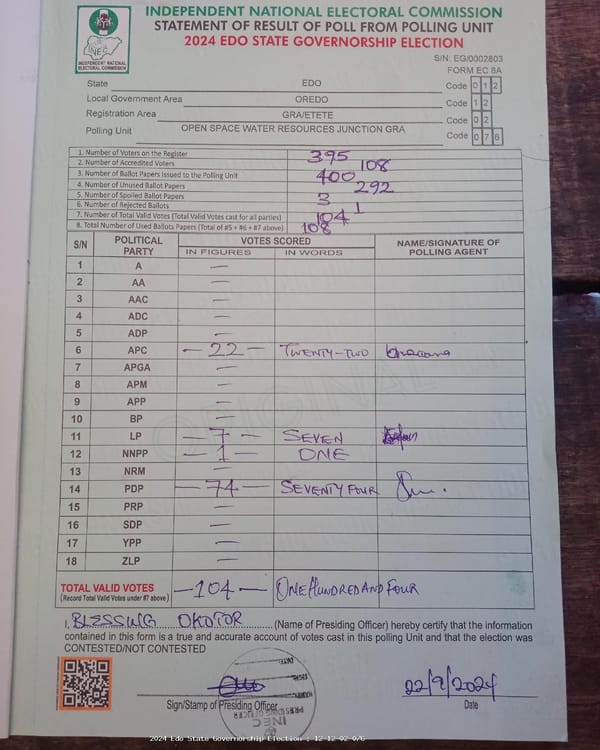 INDEPENDENT NATIONAL ELECTORAL COMMISSION
STATEMENT OF RESULT OF POLL FROM POLLING UNIT
2024 EDO STATE GOVERNORSHIP ELECTION
INEC
INDEPENDENT NATIONAL
ELECTORAL COMMISSION
S/N: EG/0002803
FORM EC 8A
State EDO Code 0 1 2
Local Government Area OREDO Code 1 2
Registration Area GRA/ETETE Code 0 2
Polling Unit OPEN SPACE WATER RESOURCES JUNCTION GRA Code 0 7 6
1. Number of Voters on the Register 395
2. Number of Accredited Voters 108
3. Number of Ballot Papers Issued to the Polling Unit 400
4. Number of Unused Ballot Papers 292
5. Number of Spoiled Ballot Papers 3
6. Number of Rejected Ballots 1
7. Number of Total Valid Votes (Total Valid Votes cast for all parties) 104
8. Total Number of Used Ballots Papers (Total of #5 + #6 + #7 above) 108
S/N POLITICAL PARTY VOTES SCORED NAME/SIGNATURE OF POLLING AGENT
IN FIGURES IN WORDS
1 A —
2 AA —
3 AAC —
4 ADC —
5 ADP —
6 APC — 22 — TWENTY-TWO
7 APGA —
8 APM —
9 APP —
10 BP —
11 LP — 7 — SEVEN
12 NNPP — 1 — ONE
13 NRM —
14 PDP — 74 — SEVENTY FOUR
15 PRP —
16 SDP —
17 YPP —
18 ZLP —
TOTAL VALID VOTES — 104 — ONE HUNDRED AND FOUR
(Record Total Valid Votes under #7 above)
ORIGINAL
I, BLESSING OKOTOR (Name of Presiding Officer) hereby certify that the information
contained in this form is a true and accurate account of votes cast in this polling Unit and that the election was
CONTESTED/NOT CONTESTED
22/9/2024
Sign/Stamp of Presiding Officer Date
DATE:
SIGN:
PRESIDING OFFICER
INEC
2024 Edo State Governorship Election : 12-12-02-076